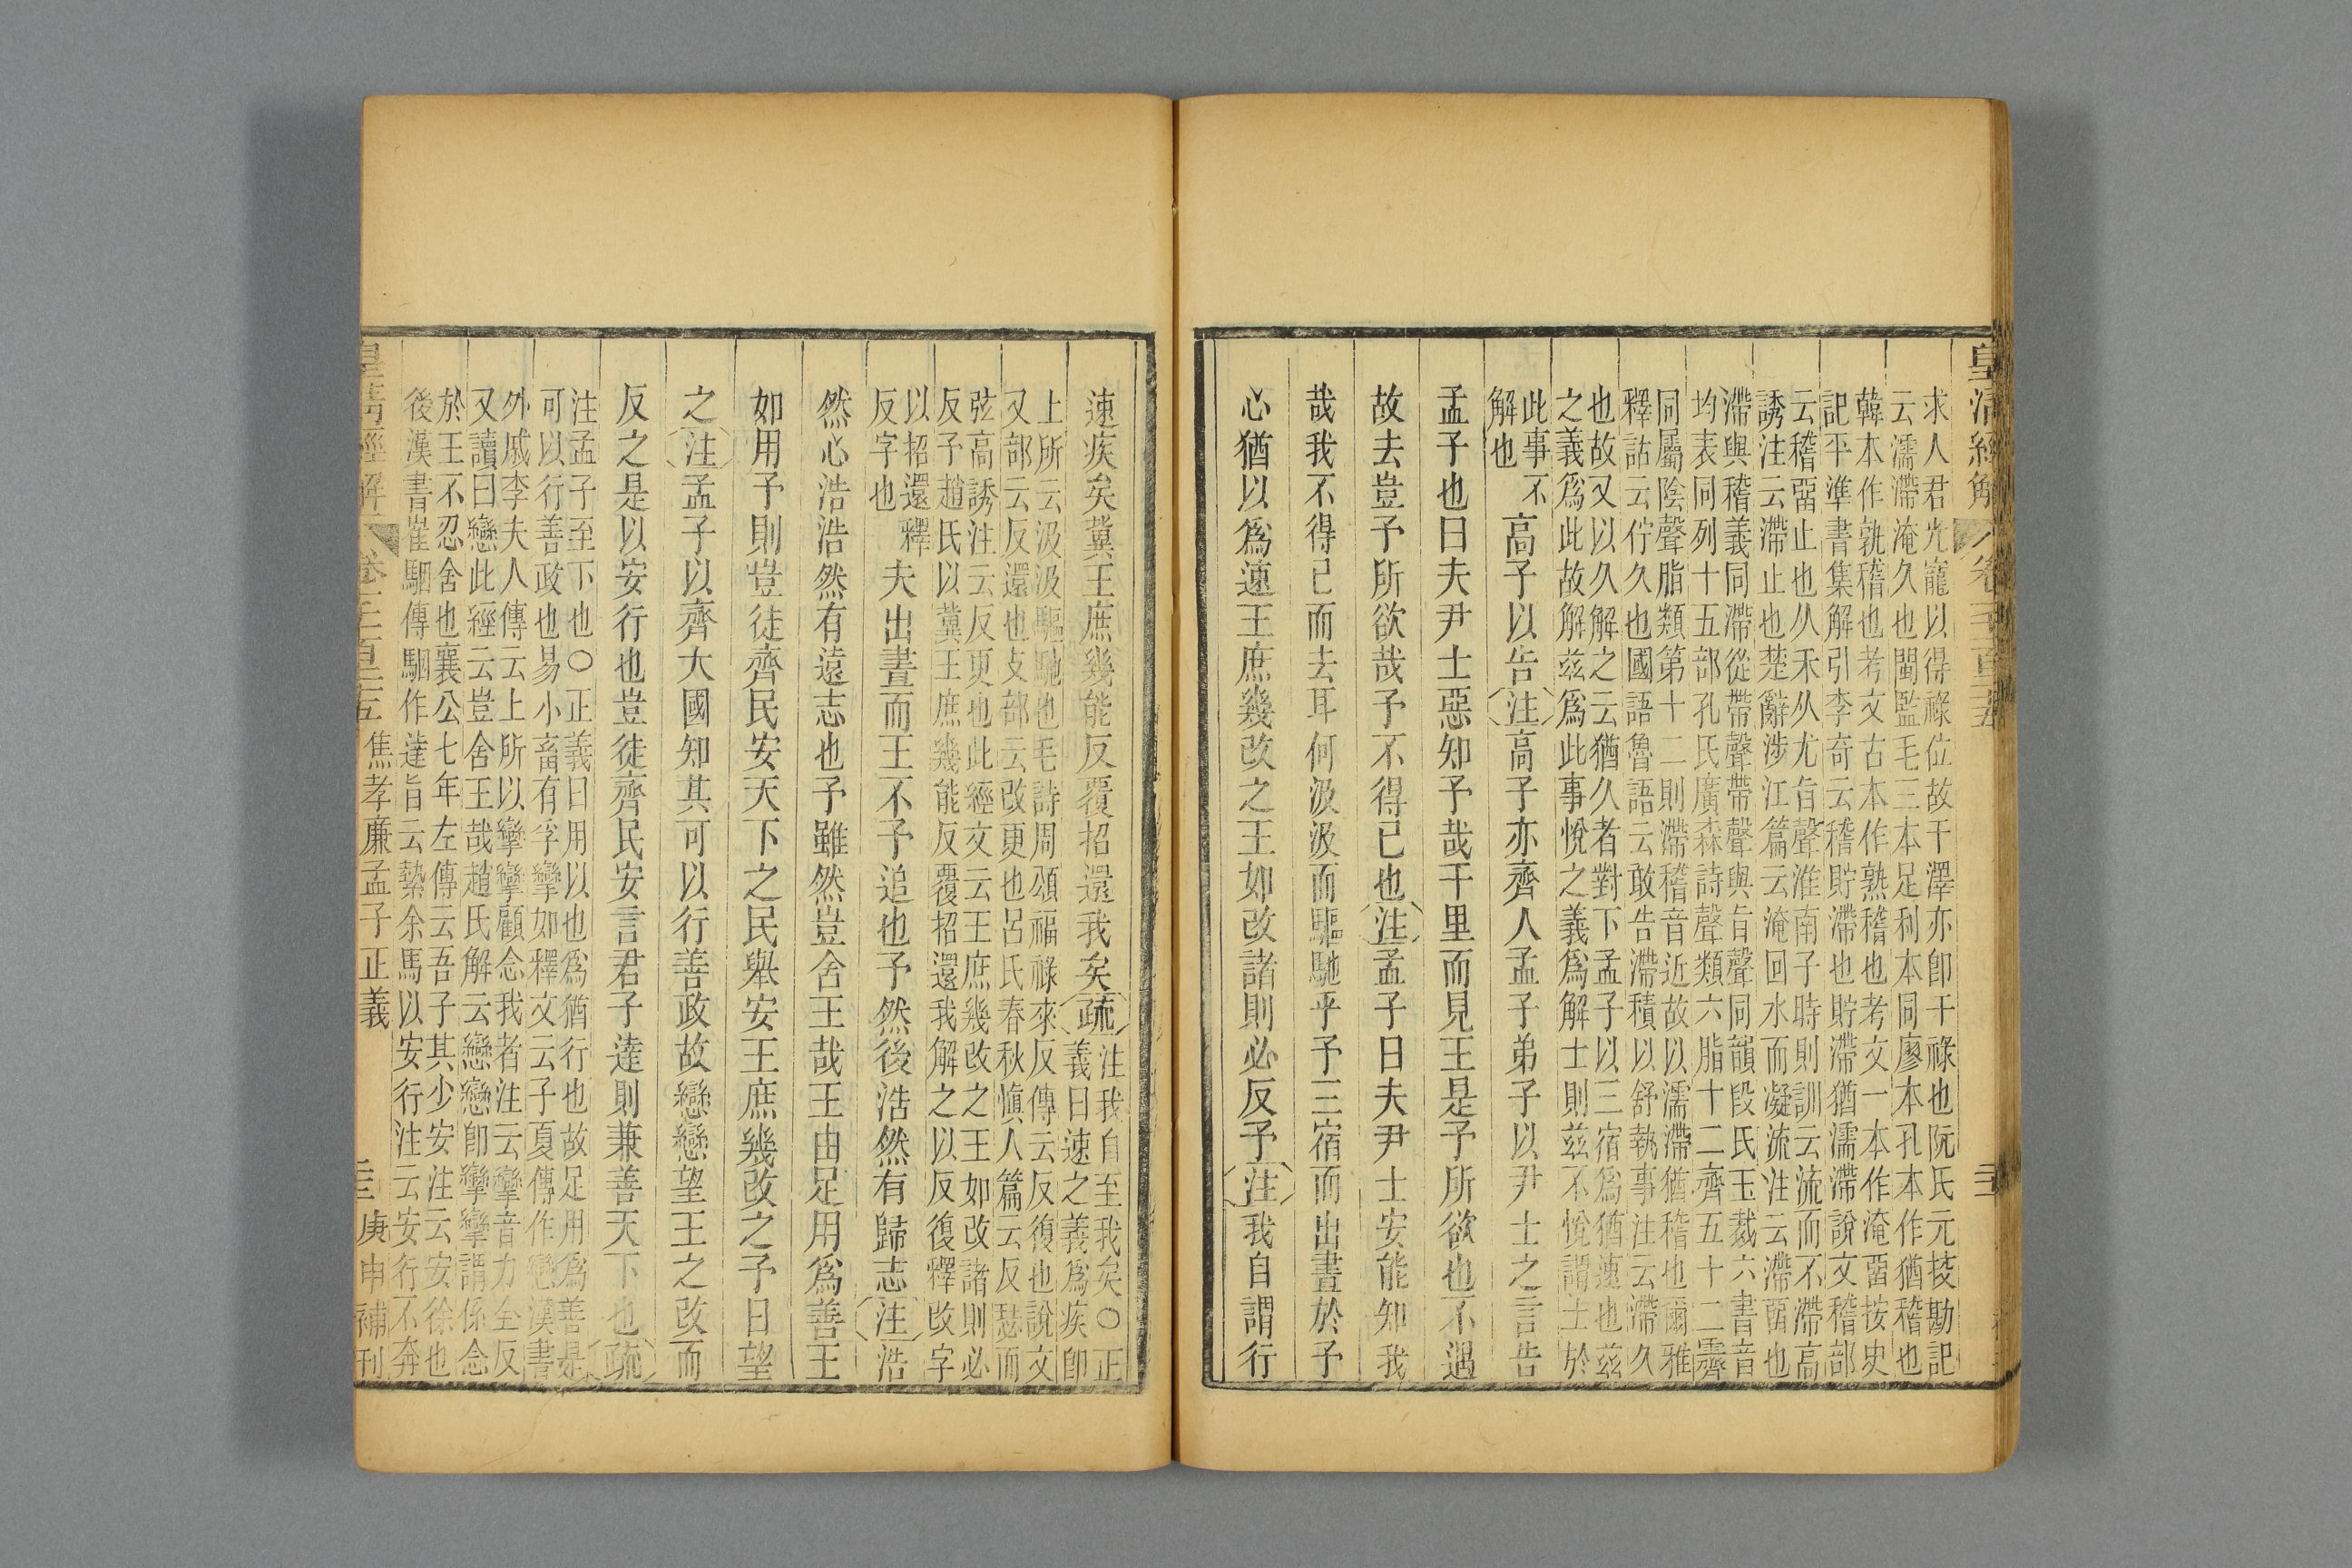 皇清經解
求人君光寵以得祿位故干澤亦卽干祿也阮氏元挍勘記
云濡滯淹久也閩監毛三本足利本同廖本孔本作猶稽也
韓本作孰稽也考文古本作熟稽也考文一本作淹畱按史
記平準書集解引李奇云稽貯滯也貯滯猶濡滯說文稽部
云稽畱止也从禾从尤旨聲淮南子時則訓云流而不滯高
誘注云滯止也楚辭涉江篇云淹回水而凝流注云滯畱也
滯與稽義同滯從帶聲帶聲與旨聲同韻段氏玉裁六書音
均表同列十五部孔氏廣森詩聲類六脂十二齊五十二霽
同屬陰聲脂類第十二則滯稽音近故以濡滯猶稽也爾雅
釋詁云佇久也國語魯語云敢告滯積以舒執事注云滯久
也故又以久解之云猶久者對下孟子以三宿爲猶速也茲
之義爲此故解茲爲此事悅之義爲解士則茲不悅謂士於
此事不
解也
高子以告注高子亦齊人孟子弟子以尹士之言告
孟子也曰夫尹士惡知予哉千里而見王是予所欲也不遇
故去豈予所欲哉予不得已也注孟子曰夫尹士安能知我
哉我不得已而去耳何汲汲而驅馳乎予三宿而出晝於予
心猶以爲速王庶幾改之王如改諸則必反予注我自謂行
速疾矣冀王庶幾能反覆招還我矣疏
注我自至我矣○正
義曰速之義爲疾卽
上所云汲汲驅馳也毛詩周頌福祿來反傳云反復也說文
又部云反還也攴部云改更也呂氏春秋愼人篇云反瑟而
弦高誘注云反更也此經文云王庶幾改之王如改諸則必
反予趙氏以冀王庶幾能反覆招還我解之以反復釋改字
以招還釋
反字也
夫出晝而王不予追也予然後浩然有歸志注浩
然心浩浩然有遠志也予雖然豈舍王哉王由足用爲善王
如用予則豈徒齊民安天下之民舉安王庶幾改之予日望
之注孟子以齊大國知其可以行善政故戀戀望王之改而
反之是以安行也豈徒齊民安言君子達則兼善天下也疏
注孟子至下也○正義曰用以也爲猶行也故足用爲善是
可以行善政也易小畜有孚攣如釋文云子夏傳作戀漢書
外戚李夫人傳云上所以攣攣顧念我者注云攣音力全反
又讀曰戀此經云豈舍王哉趙氏解云戀戀卽攣攣謂係念
於王不忍舍也襄公七年左傳云吾子其少安注云安徐也
後漢書崔駰傳駰作達旨云縶余馬以安行注云安行不奔
皇清經解 焦孝廉孟子正義 庚申補刊